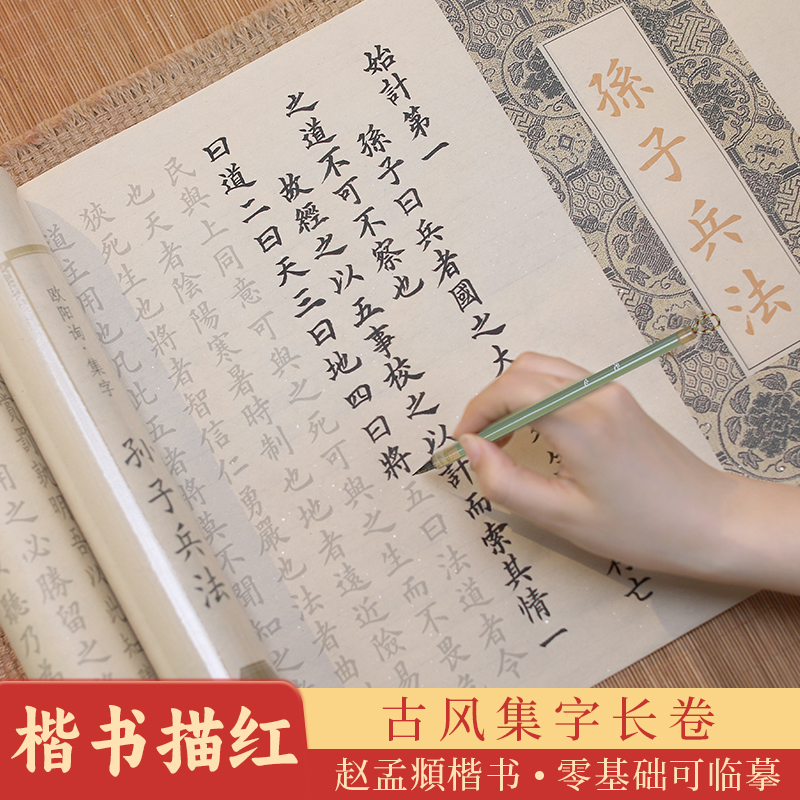 孫子兵法
始計第一
孫子曰兵者國之大
亡
之道不可不察也
故經之以五事校之以計而索其情一
曰道二曰天三曰地四曰將五曰法道者令
民與上同意可與之死可與之生而不畏
也天者陰陽寒暑時制也地者遠近險易
狹死生也將者智信仁勇嚴也法者曲
道主用也凡此五者將莫不聞知之
欧阳询·集字
孙子兵法
用之必勝留之
聽乃為
楷书描红
古风集字长卷
赵孟頫楷书·零基础可临摹